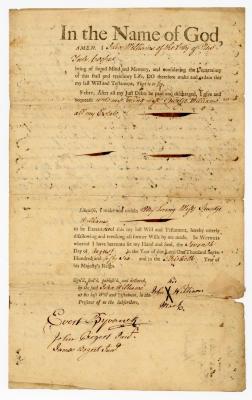 In the Name of God,
AMEN. I John Williams of the City of New
York
being of sound Mind and Memory, and considering the Uncertainty
of this frail and transitory Life, DO therefore make and ordain this
my last Will and Testament, That is to say,
First, After all my Just Debts be paid and discharged, I give and
bequeath unto my loving wife Williams
all my Estate
Likewise, I make and ordain My loving Wife
Williams
to be Executrix of this my last Will and Testament, hereby utterly
disallowing and revoking all former Wills by me made. In Witness
whereof I have hereunto set my Hand and Seal, the Seventh
Day of August in the Year of our Lord One Thousand Seven
Hundred and fifty Six and in the Thirtieth Year of
his Majesty's Reign.
Sign'd, seal'd, publish'd, and deliver'd,
by the said John Williams
as his last Will and Testament, in the
Presence of us the Subscribers,
his
John X Williams
Mark
Evert Byvanck
John Bogert Junr.